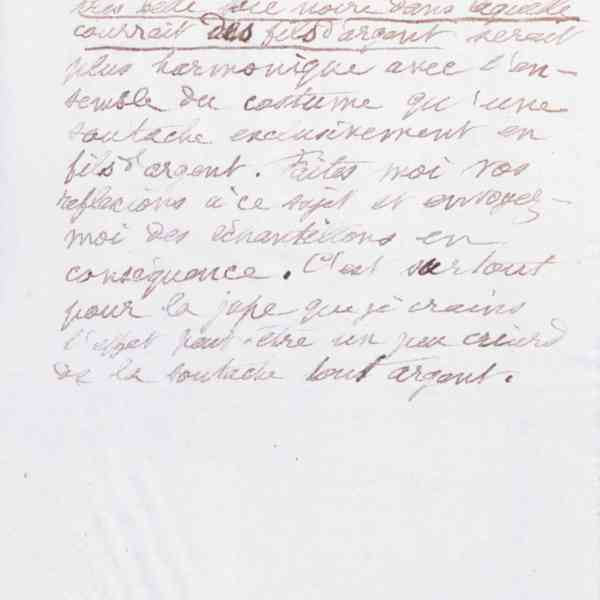 très belle soie noire dans laquelle
courrait des fils d'argent serait
plus harmonique avec l'en-
semble du costume qu'une
soutache exclusivement en
fils d'argent. Faites moi vos
reflexions à ce sujet et envoyez-
moi des échantillons en
conséquence. C'est surtout
pour la jupe que je crains
l'effet peut-être un peu criard
de la soutache tout argent.